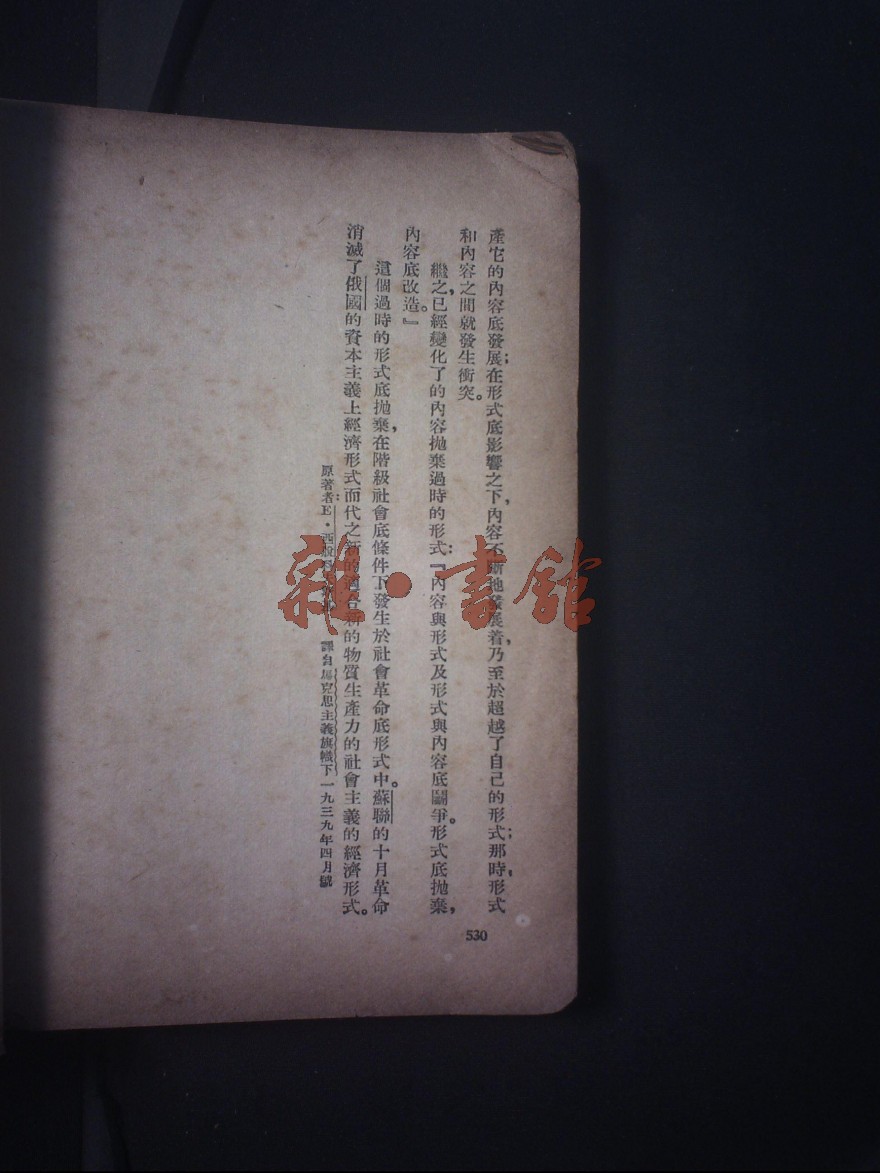 產它的內容底發展;在形式底影響之下,內容不斷地發展着,乃至於超越了自己的形式;那時,形式
和內容之間就發生衝突。
繼之,已經變化了的內容拋棄過時的形式:『內容與形式及形式與內容底鬭爭。形式底拋棄,
內容底改造。』
這個過時的形式底拋棄,在階級社會底條件下發生於社會革命底形式中。蘇聯的十月革命
消滅了俄國的資本主義上經濟形式而代之新的適合新的物質生產力的社會主義的經濟形式。
原著者:E·西 譯自馬克思主義旗幟下一九三九年四月號
530
雜·書館